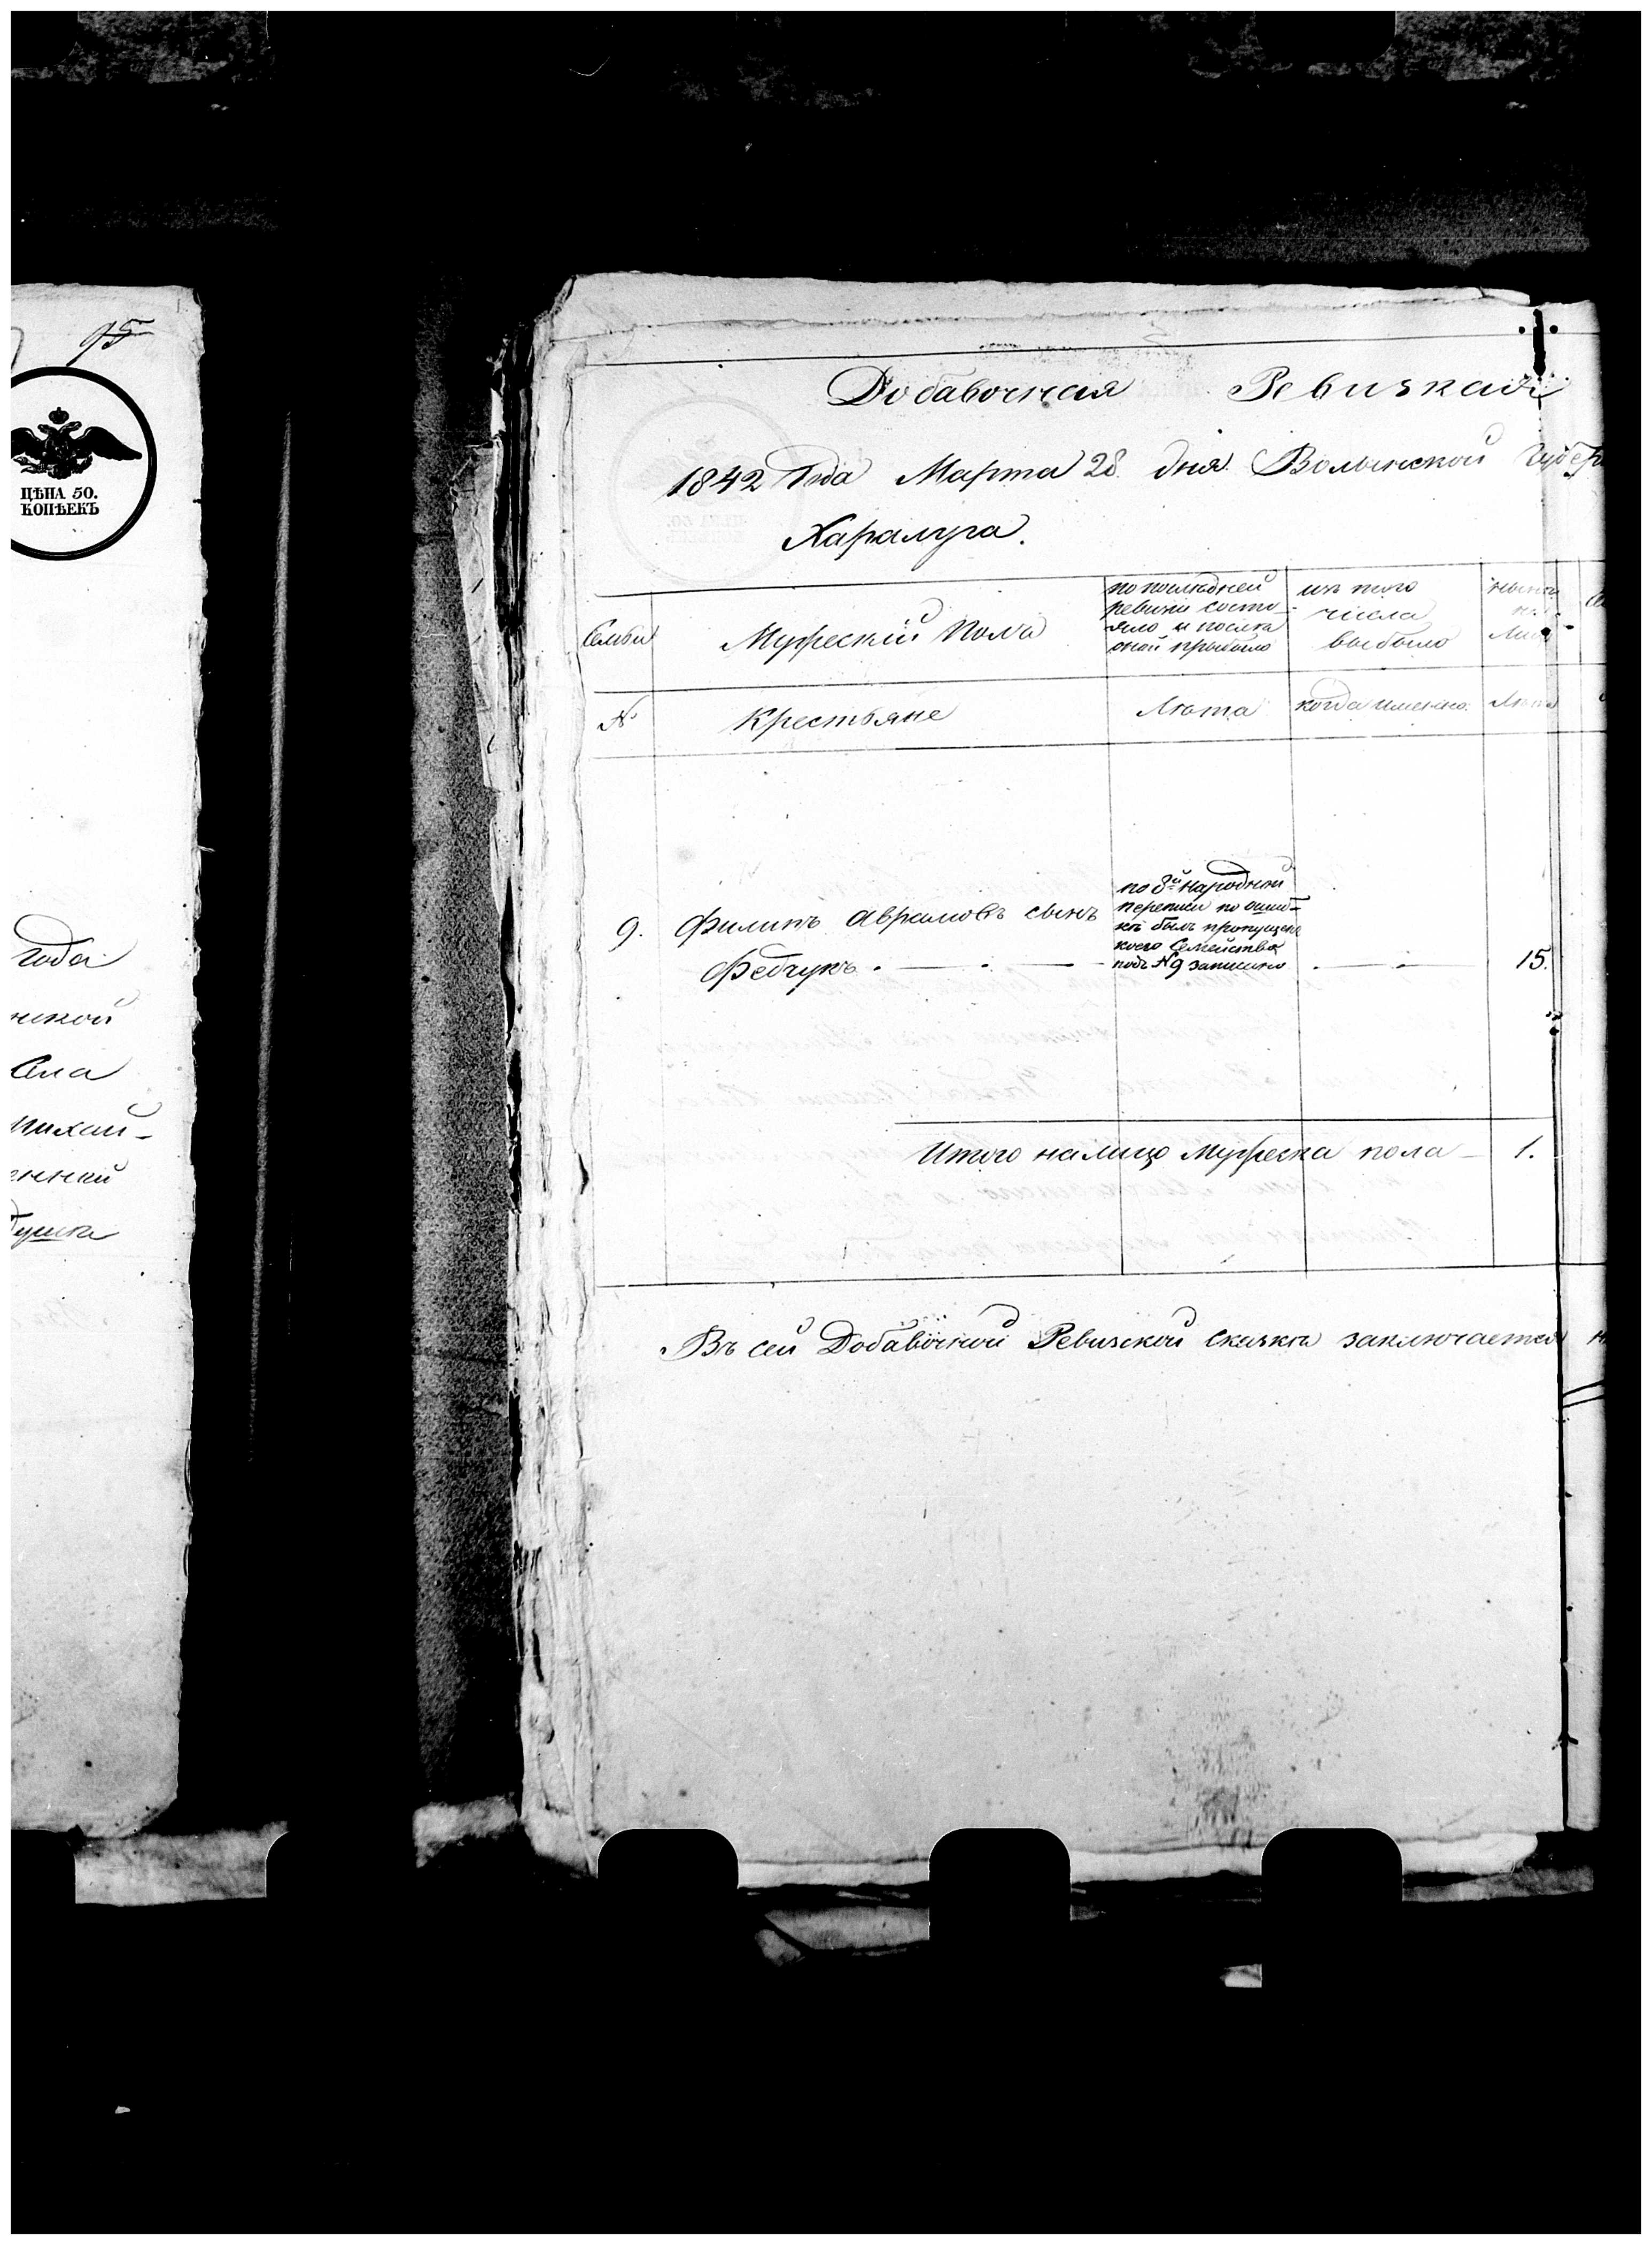 95
ЦѢНА 50.
КОПѢЕКЪ
года
нской
Села
михай-
енной
Добавочная Ревизкая
1842 Года Марта 28 дня Волынской Губер
Харалуга.
Семьи
Мужескій Полъ
по последней
ревизіи состо
яло и после
оной прибыло
изъ того
числа
выбыло
№
Крестьяне
Лѣта
когда именно.
Лѣта
9. Филипъ Аврамовъ сынъ
Федчукъ. — . —
по 8й народной
переписи по ошиб-
кѣ былъ пропущенъ
коего Семейство
подъ №9 записано
. — . —
15.
Итого налицо мужеска пола — 1.
Въ сей Добавочной Ревизской сказкѣ заключается